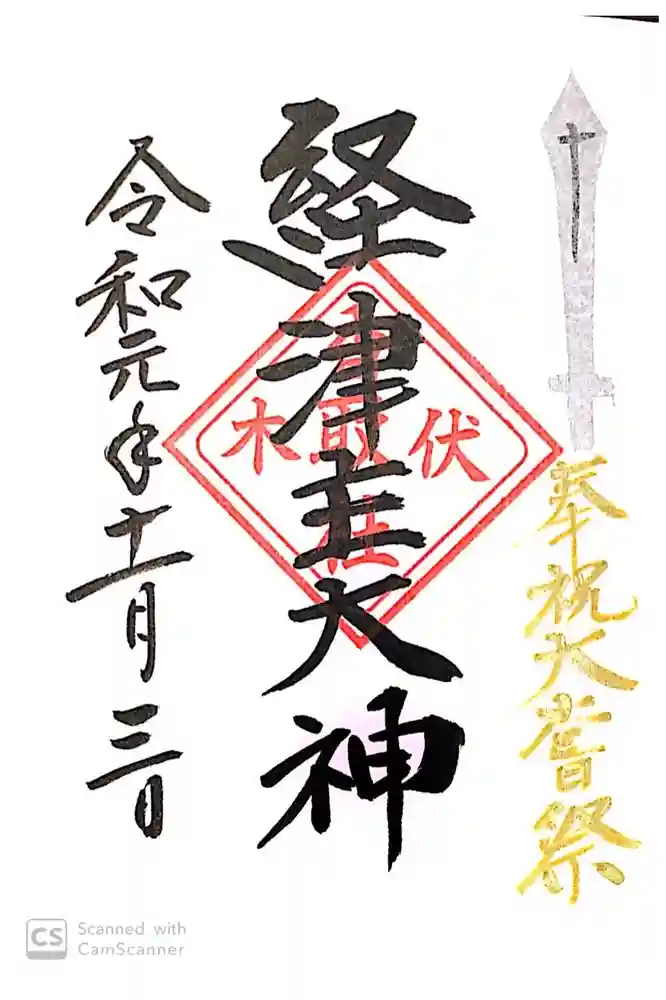 奉祝大嘗祭
経津主大神
伏木
香取社
令和元年十一月三日
Scanned with
CamScanner
CS